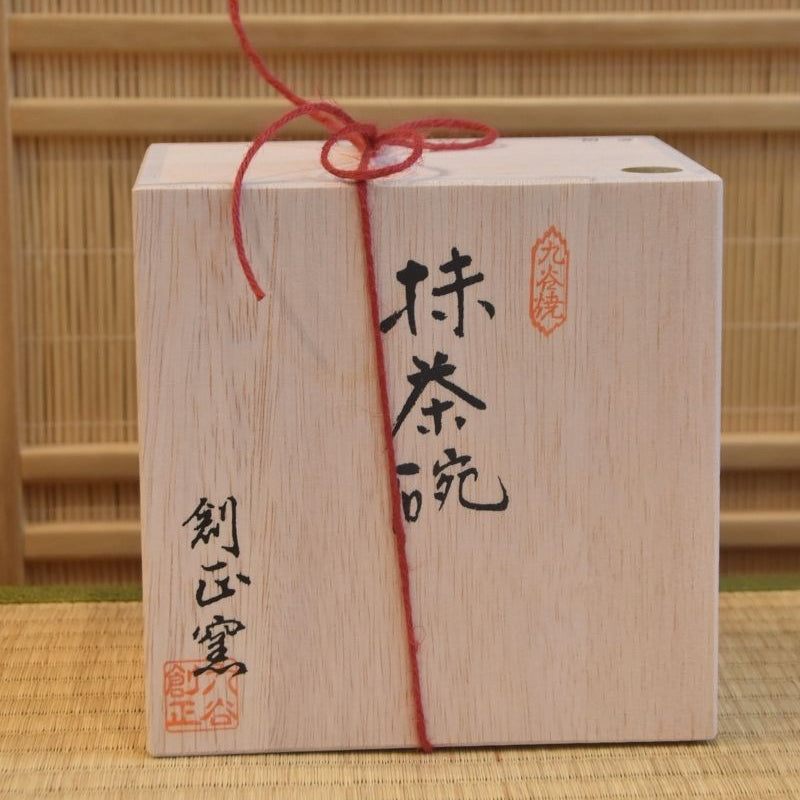 九谷焼
抹茶碗
創正窯
九谷
創正